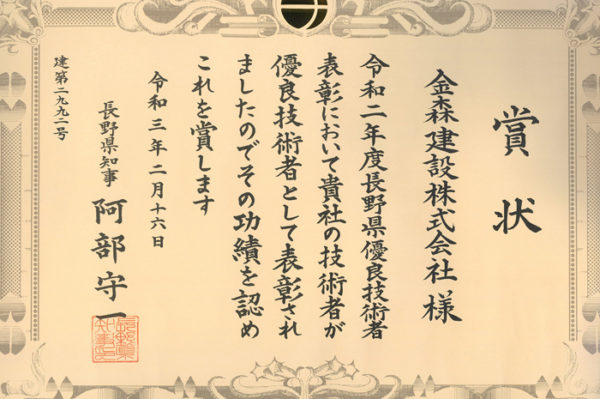 賞状
金森建設株式会社様
令和二年度長野県優良技術者
表彰において貴社の技術者が
優良技術者として表彰され
ましたのでその功績を認め
これを賞します
令和三年二月十六日
長野県知事 阿部守一
建第二九九二号